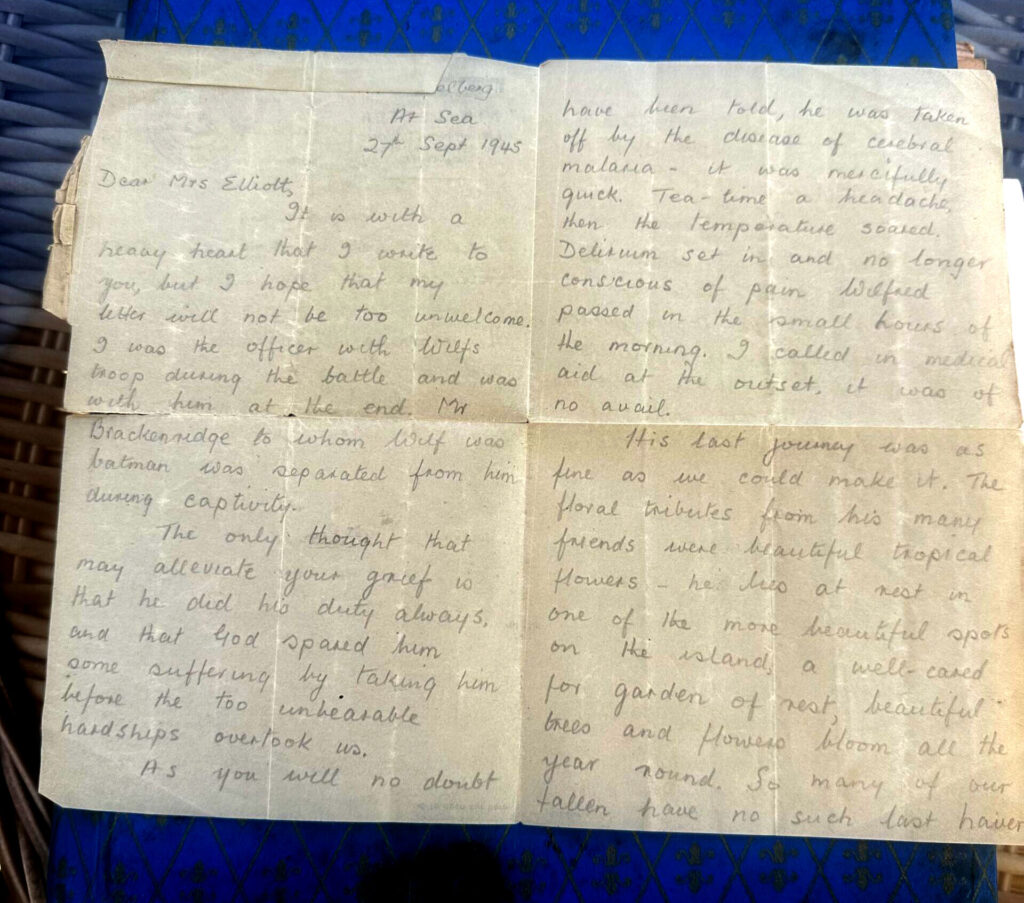 elberg
At Sea
27th Sept 1945
Dear Mrs Elliott,
It is with a
heavy heart that I write to
you, but I hope that my
letter will not be too unwelcome.
I was the officer with Wilfs
troop during the battle and was
with him at the end. Mr
Brackenridge to whom Wilf was
batman was separated from him
during captivity.
The only thought that
may alleviate your grief is
that he did his duty always,
and that God spared him
some suffering by taking him
before the too unbearable
hardships overtook us.
As you will no doubt
have been told, he was taken
off by the disease of cerebral
malaria - it was mercifully
quick. Tea-time a headache,
then the temperature soared.
Delirium set in and no longer
conscious of pain Wilfred
passed in the small hours of
the morning. I called in medical
aid at the outset, it was of
no avail.
His last journey was as
fine as we could make it. The
floral tributes from his many
friends were beautiful tropical
flowers - he lies at rest in
one of the more beautiful spots
on the island, a well-cared
for garden of rest, beautiful
trees and flowers bloom all the
year round. So many of our
fallen have no such last haven